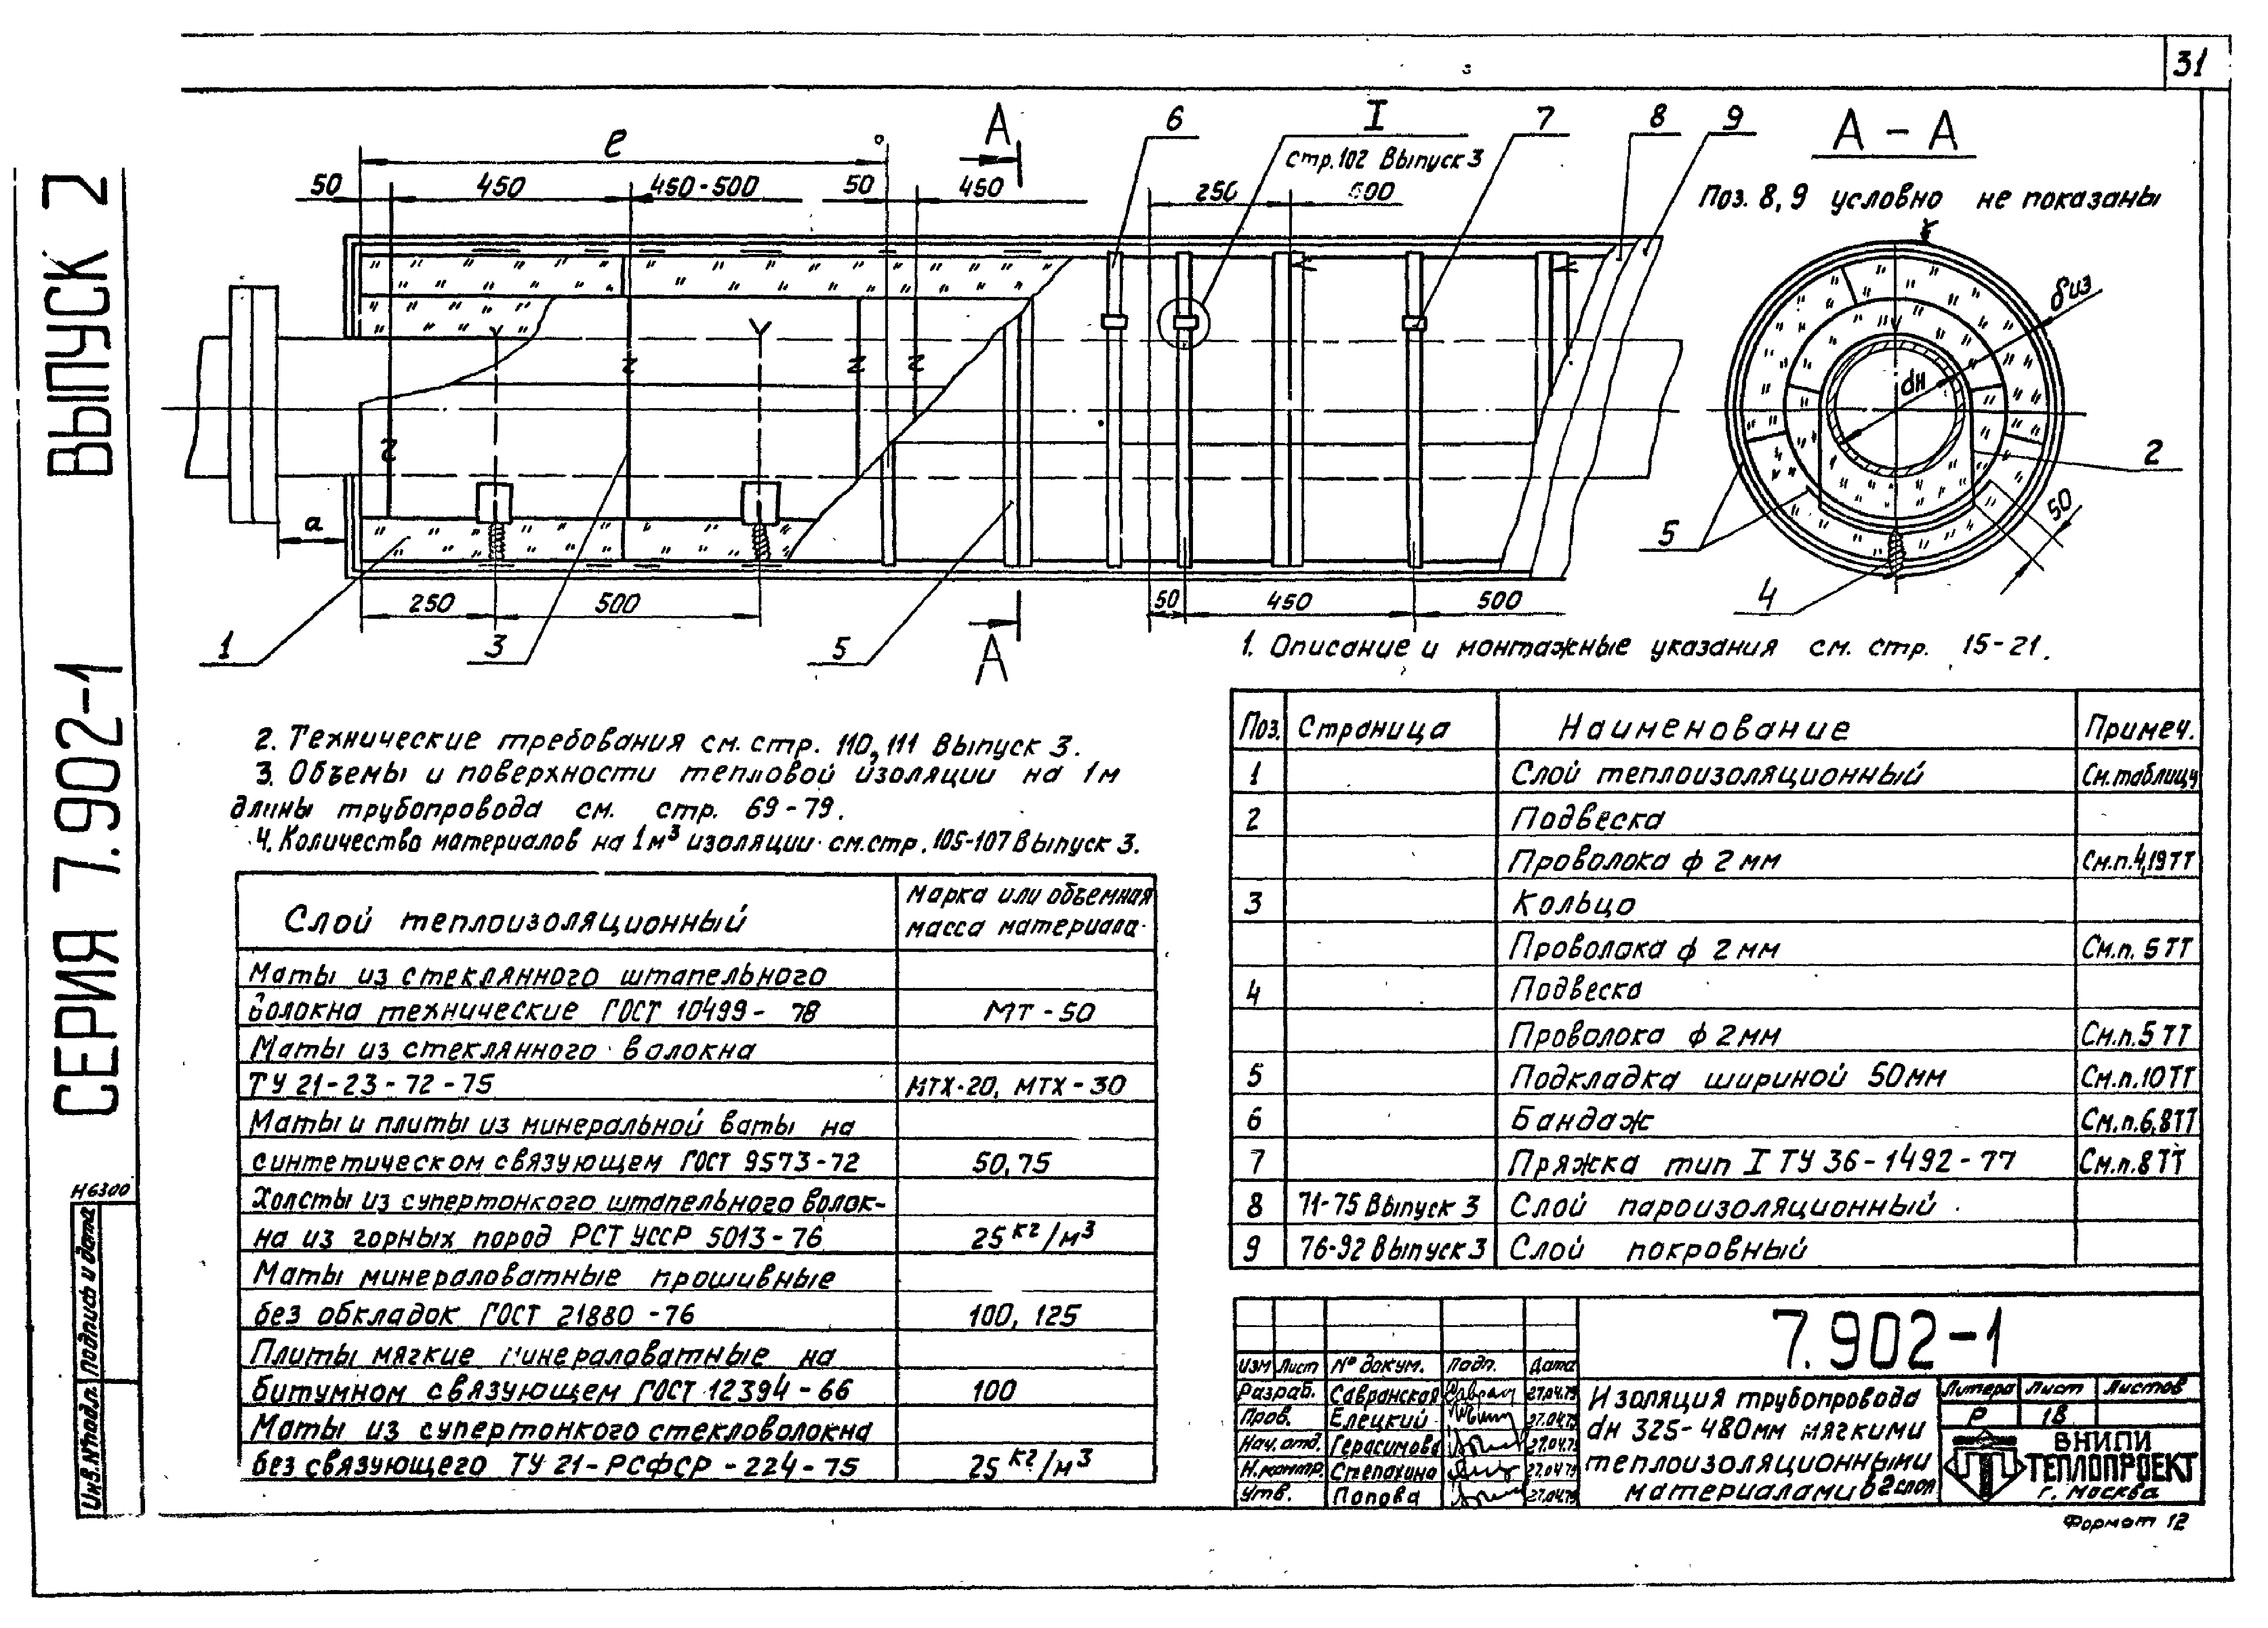 31
СЕРИЯ 7.902-1 ВЫПУСК 2
А
6
I
7
8
9
А - А
стр. 102 Выпуск 3
ℓ
50
450
450-500
50
450
250
600
Поз. 8, 9 условно не показаны
δиз
dн
2
50
5
4
а
250
500
50
450
500
1
3
5
А
1. Описание и монтажные указания см. стр. 15-21.
2. Технические требования см. стр. 110, 111 Выпуск 3.
3. Объемы и поверхности тепловой изоляции на 1м
длины трубопровода см. стр. 69-79.
4. Количество материалов на 1м³ изоляции см. стр. 105-107 Выпуск 3.
Слой теплоизоляционный
Марка или объемная
масса материала
Маты из стеклянного штапельного
волокна технические ГОСТ 10499-78 МТ-50
Маты из стеклянного волокна
ТУ 21-23-72-75 МТХ-20, МТХ-30
Маты и плиты из минеральной ваты на
синтетическом связующем ГОСТ 9573-72 50, 75
Холсты из супертонкого штапельного волок-
на из горных пород РСТ УССР 5013-76 25 кг/м³
Маты минераловатные прошивные
без обкладок ГОСТ 21880-76 100, 125
Плиты мягкие минераловатные на
битумном связующем ГОСТ 12394-66 100
Маты из супертонкого стекловолокна
без связующего ТУ 21-РСФСР-224-75 25 кг/м³
Поз. Страница Наименование Примеч.
1 Слой теплоизоляционный См. таблицу
2 Подвеска
Проволока ф 2 мм См.п.4,19ТТ
3 Кольцо
Проволока ф 2 мм См.п. 5ТТ
4 Подвеска
Проволока ф 2 мм См.п.5ТТ
5 Подкладка шириной 50мм См.п.10ТТ
6 Бандаж См.п.6,8ТТ
7 Пряжка тип I ТУ 36-1492-77 См.п.8ТТ
8 71-75 Выпуск 3 Слой пароизоляционный
9 76-92 Выпуск 3 Слой покровный
7.902-1
Изм Лист № докум. Подп. Дата
Разраб. Савранская 27.04.79
Пров. Елецкий 27.04.79
Нач. отд. Герасимова 27.04.79
Н.контр. Степахина 27.04.79
Утв. Попова 27.04.79
Изоляция трубопровода
dн 325-480мм мягкими
теплоизоляционными
материалами в 2 слоя
Литера Лист Листов
Р 18
ВНИПИ
ТЕПЛОПРОЕКТ
г. Москва
Формат 12
Н6300
Инв.№подл. Подпись и дата